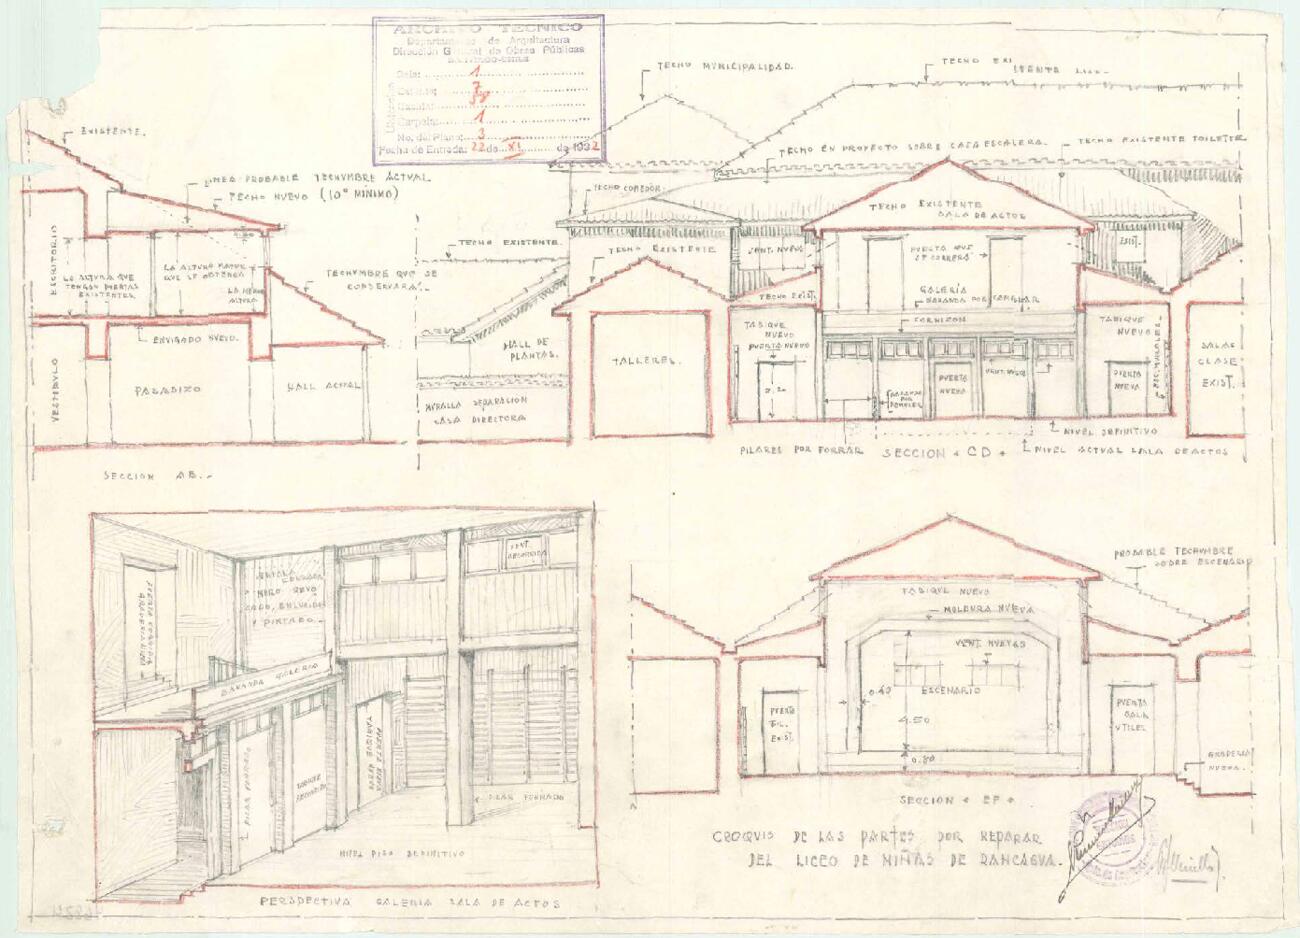 ARCHIVO TECNICO
Departamento de Arquitectura
Dirección General de Obras Públicas
SANTIAGO-CHILE
Sala: 1
Casilla: 58
Carpeta: 1
No. del Plano: 3
Fecha de Entrada: 22 de XI de 1932
TECHO MUNICIPALIDAD.
TECHO EXISTENTE LICEO
TECHO EN PROYECTO SOBRE CAJA ESCALERA.
TECHO EXISTENTE TOILETTE
EXISTENTE.
LINEA PROBABLE TECHUMBRE ACTUAL
TECHO NUEVO (10° MÍNIMO)
TECHO CORREDOR.
TECHO EXISTENTE
SALA DE ACTOS
TECHO EXISTENTE.
TECHO EXISTENTE
VENT. NUEVAS
EXIST.
ESCRITORIO
LA ALTURA QUE
TENGAN PUERTAS
EXISTENTES.
LA ALTURA
QUE SE OBTENGA
ALTURA
TECHUMBRE QUE SE
CONSERVARÁ.
PUERTA NUEVA
DE CORRERA
GALERÍA
BARANDA POR CAMBIAR
TECHO EXIST.
CORNIZON
ENVIGADO NUEVO.
HALL DE
PLANTAS.
TALLERES.
TABIQUE
NUEVO
PUERTA NUEVO
TABIQUE
NUEVO
SALAS
CLASE
EXIST.
VESTIBULO
PASADIZO
HALL ACTUAL
MURALLA SEPARACION
CASA DIRECTORA
2.20
PUERTA
NUEVA
VENT. NUEVA
PUERTA
NUEVA
PILARES POR FORRAR
SECCION "CD"
NIVEL DEFINITIVO
NIVEL ACTUAL SALA DE ACTOS
SECCION AB.-
VENT.
RECORRIDA
Y PINTADO.-
BARANDA GALERIA
PILAR FORRADO
TABIQUE
PILAR FORRADO
NIVEL PISO DEFINITIVO
PERSPECTIVA GALERIA SALA DE ACTOS
PROBABLE TECHUMBRE
SOBRE ESCENARIO
TABIQUE NUEVO
MOLDURA NUEVA
VENT. NUEVAS
ESCENARIO
0.40
4.50
0.80
PUERTA
EXIST.
PUERTA
SALA
UTILES
GRADERIA
NUEVA.
SECCION "EF"
CROQUIS DE LAS PARTES POR REPARAR
DEL LICEO DE NIÑAS DE RANCAGUA.